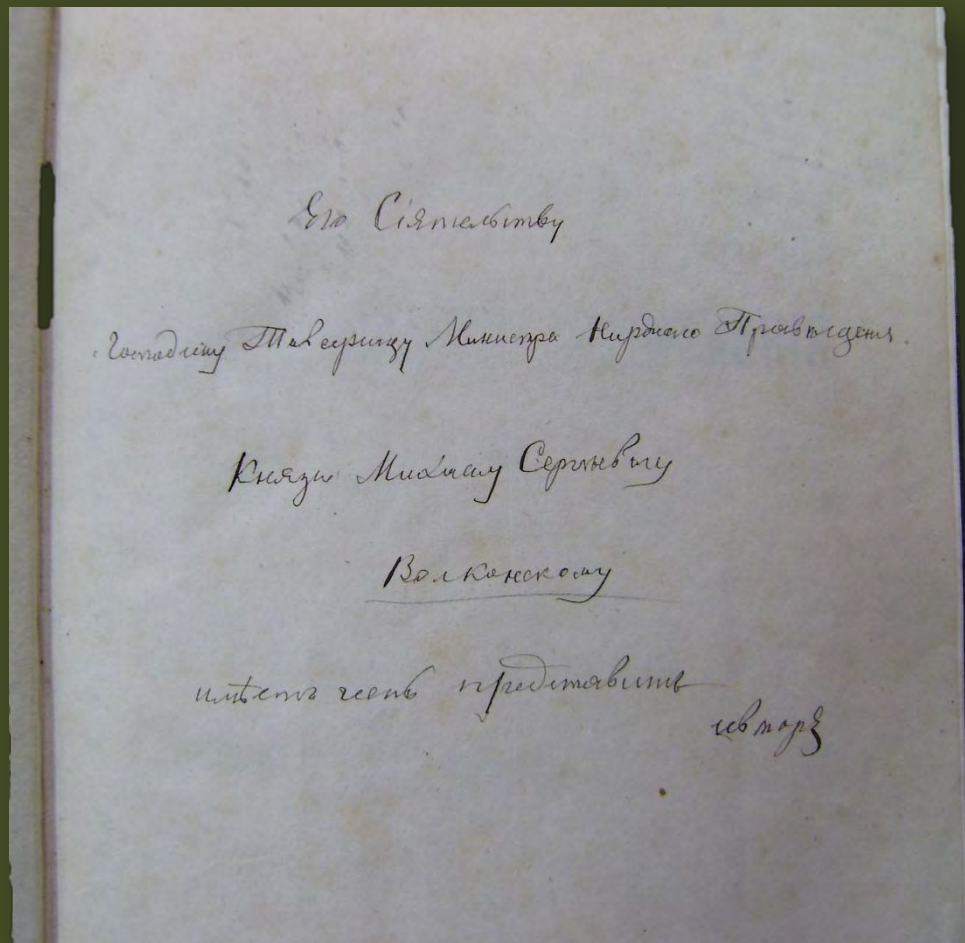 Его Сіятельству
Господину Товарищу Министра Народнаго Просвѣщенія.
Князю Михаилу Сергѣевичу
Волконскому
имѣетъ честь представить
авторъ